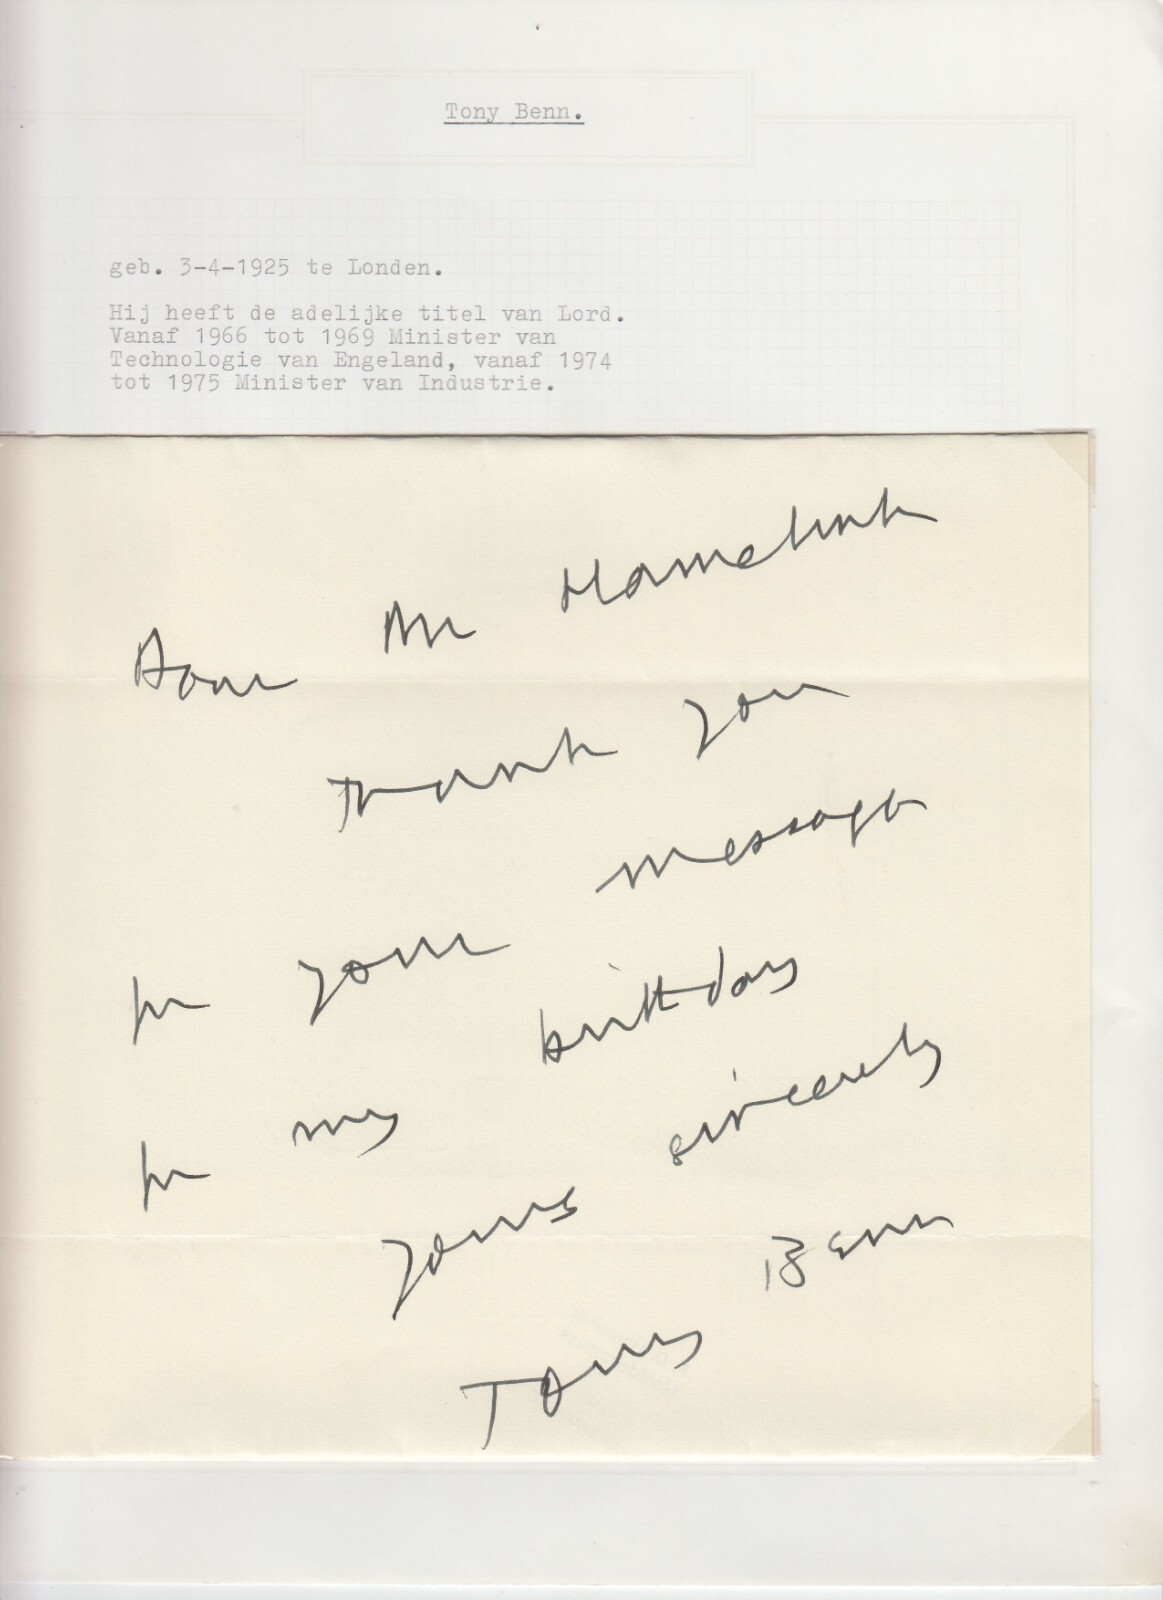 Tony Benn.
geb. 3-4-1925 te Londen.
Hij heeft de adelijke titel van Lord.
Vanaf 1966 tot 1969 Minister van
Technologie van Engeland, vanaf 1974
tot 1975 Minister van Industrie.
Dear Mr Hamelink
Thank you
for your message
for my birthday
Yours sincerely
Tony Benn